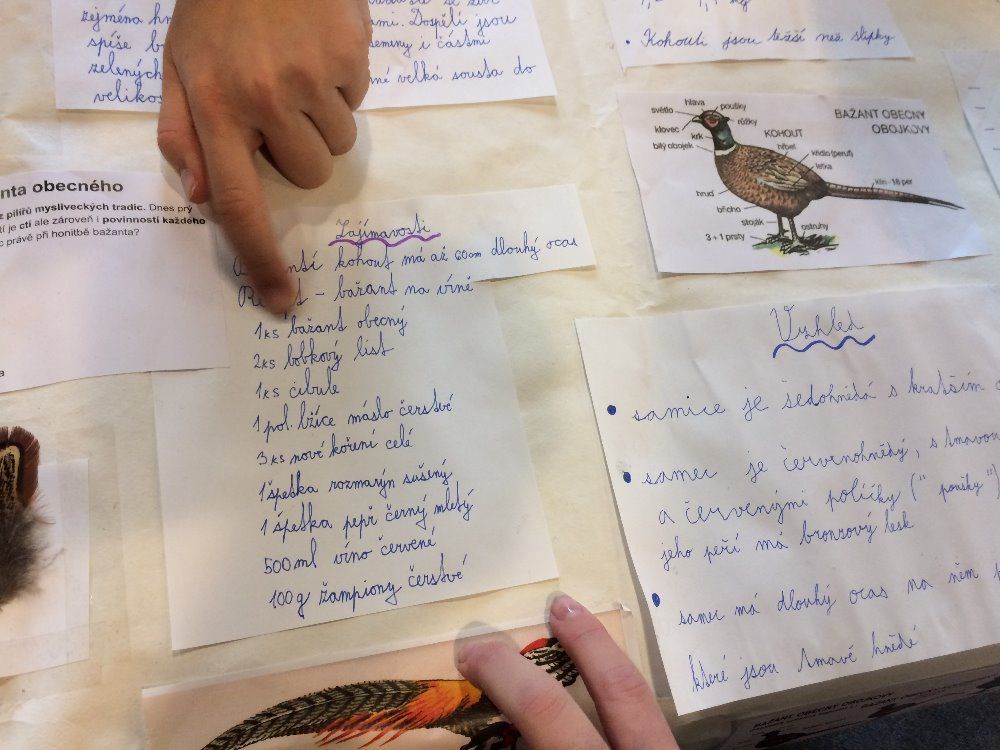 zejména
ami. Dospělí jsou
spíše
semeny i částmi
zelených
velká sousta do
velikos
• Kohouti jsou těžší než slípky
nta obecného
z pilířů mysliveckých tradic. Dnes prý
tí je ctí ale zároveň i povinností každého
c právě při honitbě bažanta?
Zajímavosti
kohout má až 60cm dlouhý ocas
– bažant na víně
1ks bažant obecný
2ks bobkový list
1ks cibule
1 pol. lžíce máslo čerstvé
3ks nové koření celé
1 špetka rozmarýn sušený
1 špetka pepř černý mletý
500ml víno červené
100g žampiony čerstvé
BAŽANT OBECNÝ
OBOJKOVÝ
KOHOUT
světlo
hlava
poušky
růžky
klovec
krk
bílý obojek
hřbet
křídlo (peruť)
letka
klín - 18 per
hruď
břicho
stoják
ostruhy
3 + 1 prsty
Vzhled
• samice je šedohnědá s kratším
• samec je červenohnědý, s tmavou
a červenými políčky ("poušky")
jeho peří má bronzový lesk
• samec má dlouhý ocas na něm
které jsou tmavě hnědé
BAŽANT OBECNÝ OBOJKOVÝ